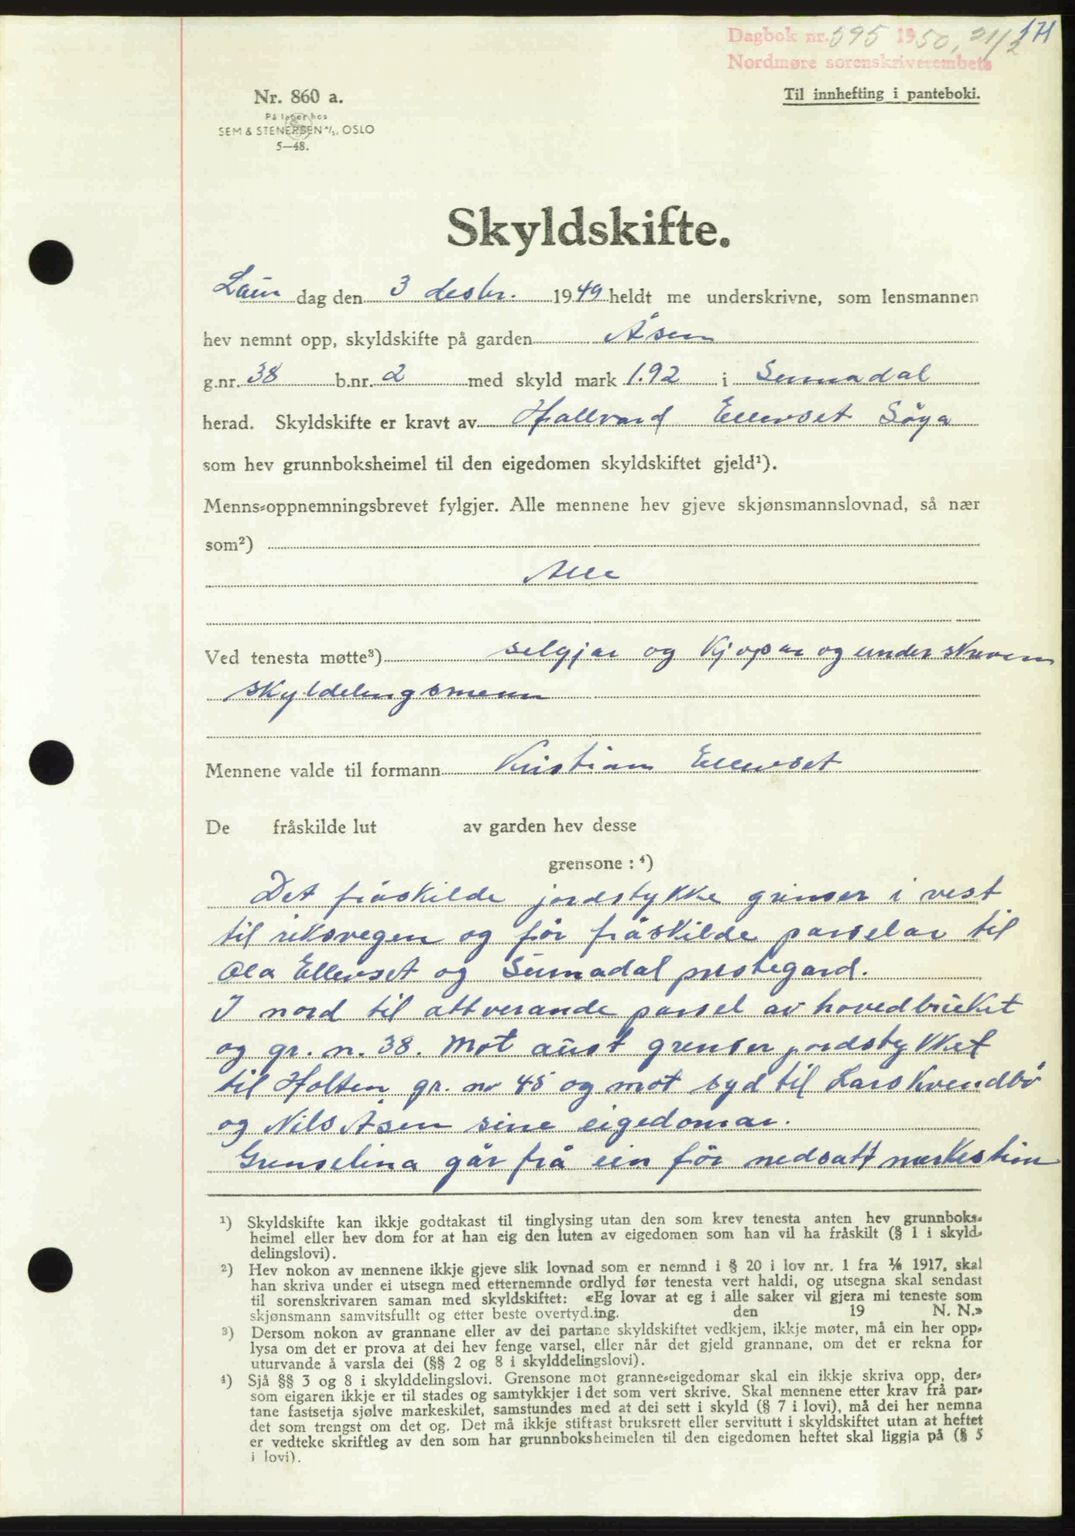 Dagbok nr. 595 1950, 21/2
171
Nordmøre sorenskriverembete
Nr. 860 a.
På lager hos
SEM & STENERSEN A/S, OSLO
5—48.
Til innhefting i panteboki.
Skyldskifte.
Laur dag den 3 desbr. 1949 heldt me underskrivne, som lensmannen
hev nemnt opp, skyldskifte på garden Åsen
g.nr. 38 b.nr. 2 med skyld mark 1.92 i Surnadal
herad. Skyldskifte er kravt av Hallvard Ellevset Søya
som hev grunnboksheimel til den eigedomen skyldskiftet gjeld¹).
Menns-oppnemningsbrevet fylgjer. Alle mennene hev gjeve skjønsmannslovnad, så nær
som²)
Alle
Ved tenesta møtte³) selgjar og Kjøpar og underskrevne
skyldelingsmenn
Mennene valde til formann Kristian Ellevset
De fråskilde lut av garden hev desse
grensone : ⁴)
Det fråskilde jordstykke grenser i vest
til riksvegen og før fråskilde parselar til
Ola Ellevset og Surnadal prestegard.
I nord til attverande parsel av hovedbruket
og gr. n. 38. Mot aust grenser jordstykket
til Holten gr. nr 45 og mot syd til Lars Kvendbø
og Nils Åsen sine eigedomar.
Grenselina går frå ein før nedsatt merkestein
¹) Skyldskifte kan ikkje godtakast til tinglysing utan den som krev tenesta anten hev grunnboks-
heimel eller hev dom for at han eig den luten av eigedomen som han vil ha fråskilt (§ 1 i skyld-
delingslovi).
²) Hev nokon av mennene ikkje gjeve slik lovnad som er nemnd i § 20 i lov nr. 1 fra 1/6 1917, skal
han skriva under ei utsegn med etternemnde ordlyd før tenesta vert haldi, og utsegna skal sendast
til sorenskrivaren saman med skyldskiftet: «Eg lovar at eg i alle saker vil gjera mi teneste som
skjønsmann samvitsfullt og etter beste overtyding. den 19 N. N.»
³) Dersom nokon av grannane eller av dei partane skyldskiftet vedkjem, ikkje møter, må ein her opp-
lysa om det er prova at dei hev fenge varsel, eller når det gjeld grannane, om det er rekna for
uturvande å varsla dei (§§ 2 og 8 i skylddelingslovi).
⁴) Sjå §§ 3 og 8 i skylddelingslovi. Grensone mot granne-eigedomar skal ein ikkje skriva opp, der-
som eigaren ikkje er til stades og samtykkjer i det som vert skrive. Skal mennene etter krav frå par-
tane fastsetja sjølve markeskilet, samstundes med at dei sett i skyld (§ 7 i lovi), må dei her nemna
det som trengst om det og. Det må ikkje stiftast bruksrett eller servitutt i skyldskiftet utan at heftet
er vedteke skriftleg av den som har grunnboksheimelen til den eigedomen heftet skal liggja på (§ 5
i lovi).